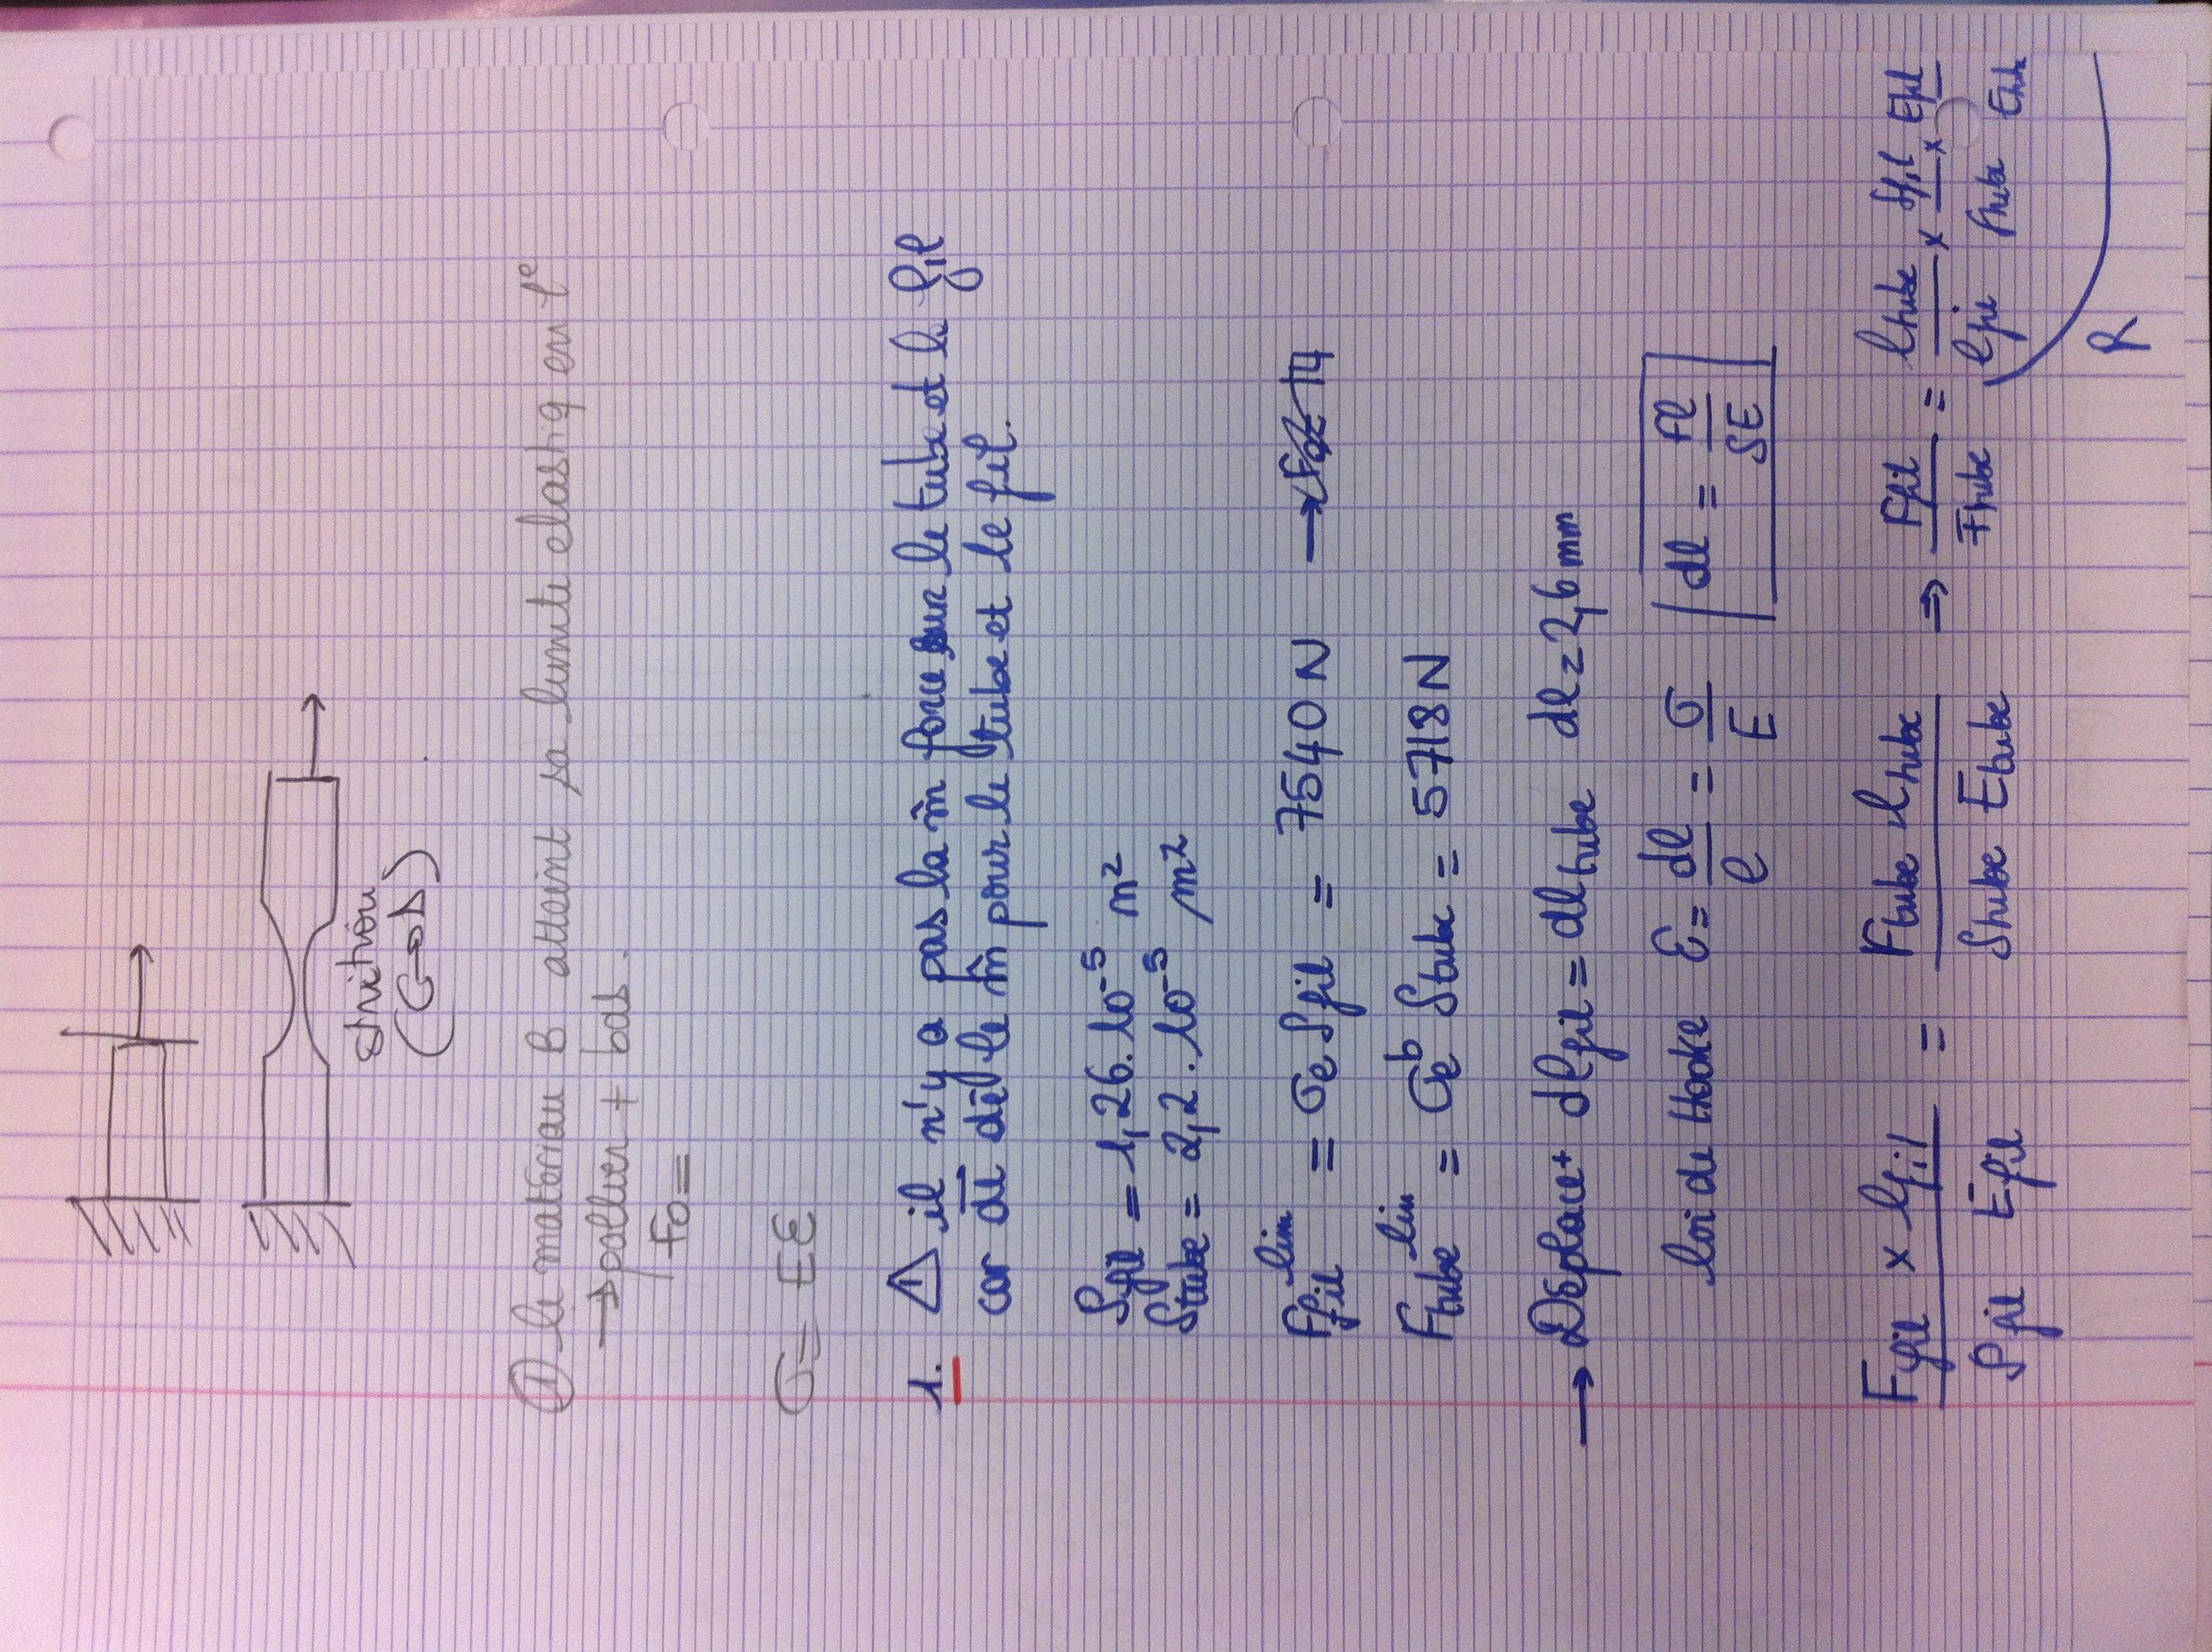 striction
(C→D)
① le matériau B atteint sa limite elastiq en 1e
→ pallier + bas.
Fo =
σ = Eε
1. ⚠ il n'y a pas la m̂ force sur le tube et le fil
car dl le m̂ pour le tube et le fil.
Sfil = 1,26.10⁻⁵ m²
Stube = 2,2.10⁻⁵ m²
Ffil^lim = σe Sfil = 7540 N →
Ftube^lim = σe^b Stube = 5718 N
→ Déplact dlfil = dltube dl = 2,6 mm
loi de Hooke ε = dl/l = σ/E | dl = Fl/SE
Ffil × lfil / Sfil Efil = Ftube . ltube / Stube Etube ⇒ Ffil/Ftube = ltube/lfil × Sfil/Stube × Efil/Etube
R